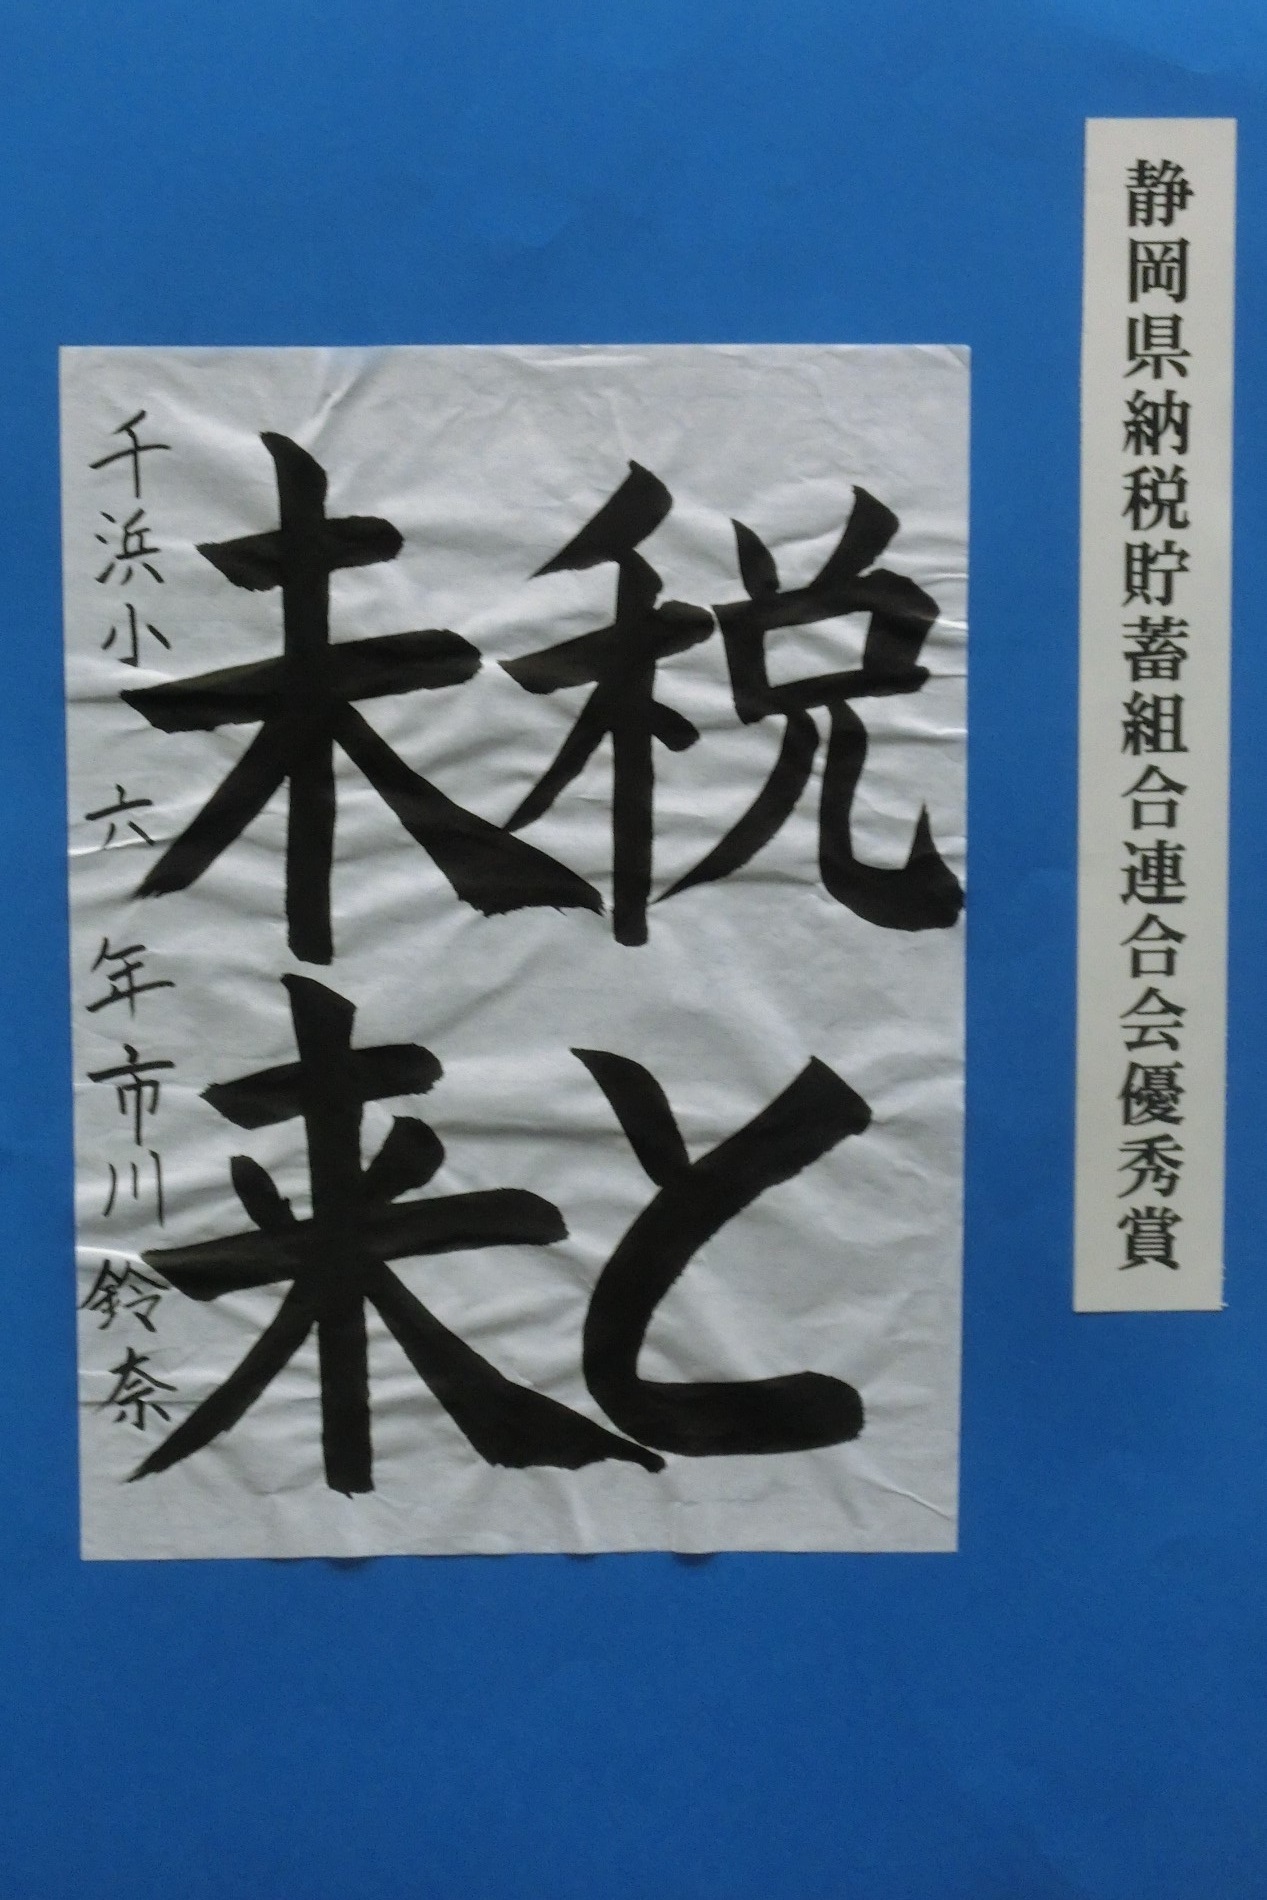 静岡県納税貯蓄組合連合会優秀賞
税と
未来
千浜小 六年 市川鈴奈